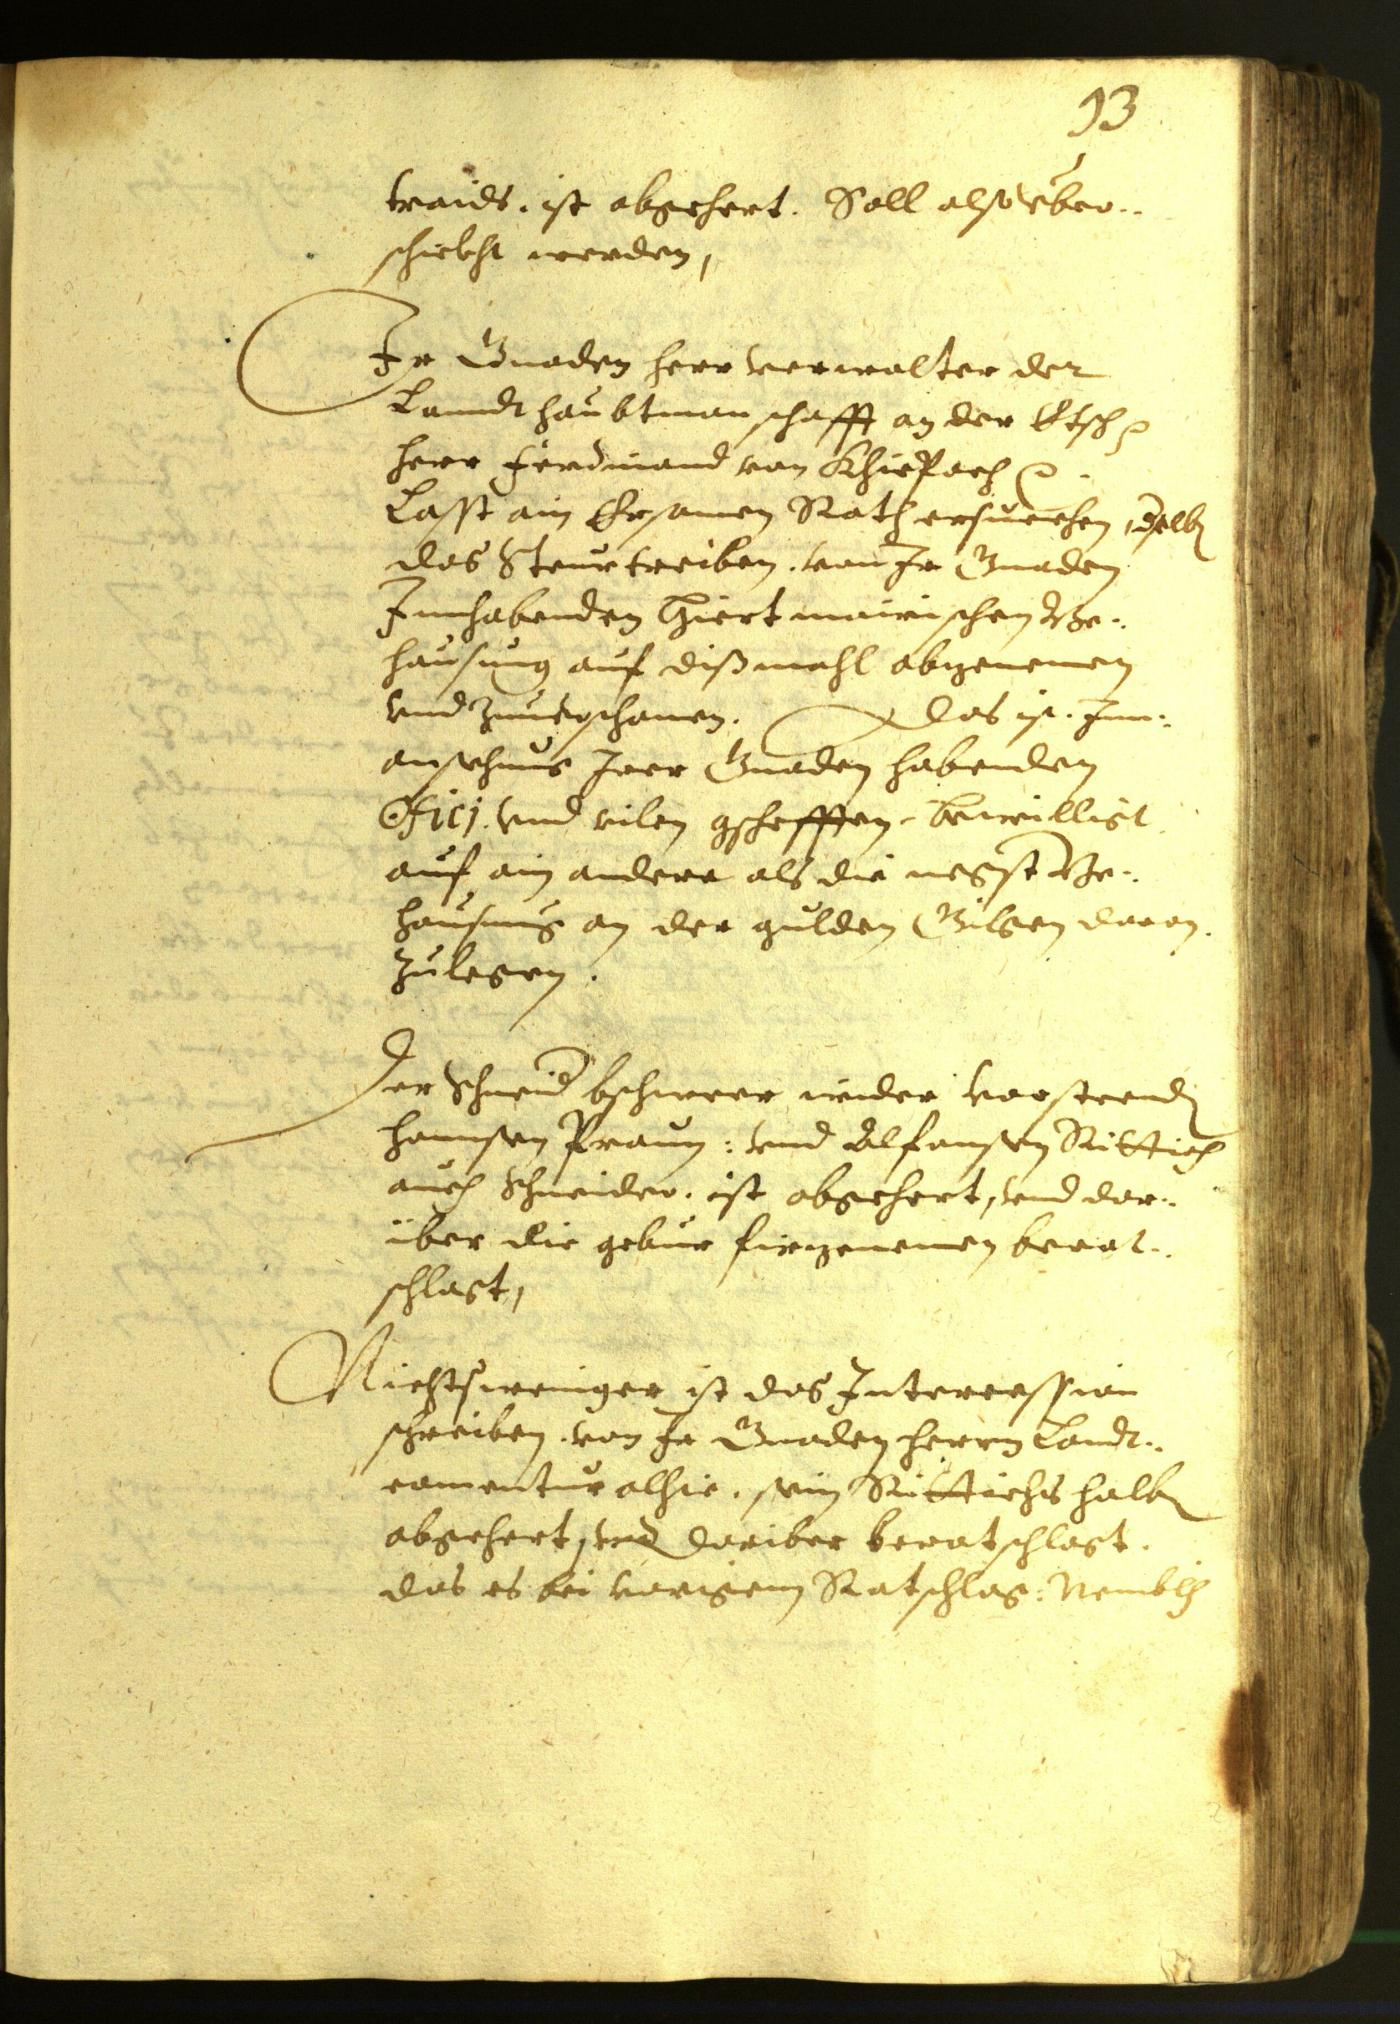 93
traids. ist abgehert. Soll also vber..
schickht werden,
Ir Gnaden herr verwalter der
Lanndtshaubtmanschafft an der Etsch
herr Ferdinand von Khiepach
Lasst ain Ersamen Rath ersuechen, dselb
das Steurtreiben. von Ir Gnaden
Innhabenden Hiertmairischen Be-.
hausung auf dißmahl abzenemen
vnd zuuerschonen. Das ist. Inn-.
ansehung Irer Gnaden habenden
Offici. vnd vilen gschefften. bewilligt
auf ain andere als die negst Be-.
hausung an der gulden Gilgen daran.
zulegen.
Der Schneid bschwer wider vorsteend
hannsen Praun: vnd Alfansen Rittich
auch Schneider. ist abgehert, vnd dar-.
über die gebür firgenemen berat-.
schlagt,
Nichtsweniger ist das Intercession
schreiben. von Ir Gnaden herrn Landt-.
comentur alhie. sein Rittichs halb
abgehert, vnd dariber beratschlagt.
das es bei vorigem Ratschlag: Nemblich